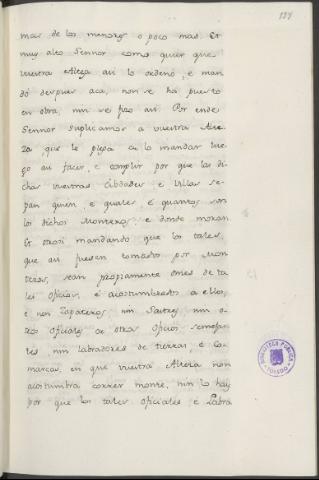 139
mas de los menores o poco mas. Et
muy alto Sennor, como quier que
vuestra Alteza asi lo ordenó, e man
dó despues aca, non se ha puesto
en obra, nin se fizo asi. Por ende
Sennor suplicamos a vuestra Alte
za que le plega de lo mandar lue
go asi facer, e complir por que las di
chas vuestras Cibdades e Villas se
pan quien, e quales é quantos son
los dichos Monteros: e donde moran
Et otrosi mandando que los tales,
que asi fuesen tomados por Mon
teros, sean propriamente omes de ta
les oficios, é acostumbrados a ellos,
e non Zapateros, nin Sastres, nin o-
tros oficiales de otros oficios semejan
tes nin labradores de tierras, e Co
marcas, en que vuestra Alteza non
acostumbra correr monte, nin lo hay
por que los tales oficiales e Labra
BIBLIOTECA PUBLICA
TOLEDO